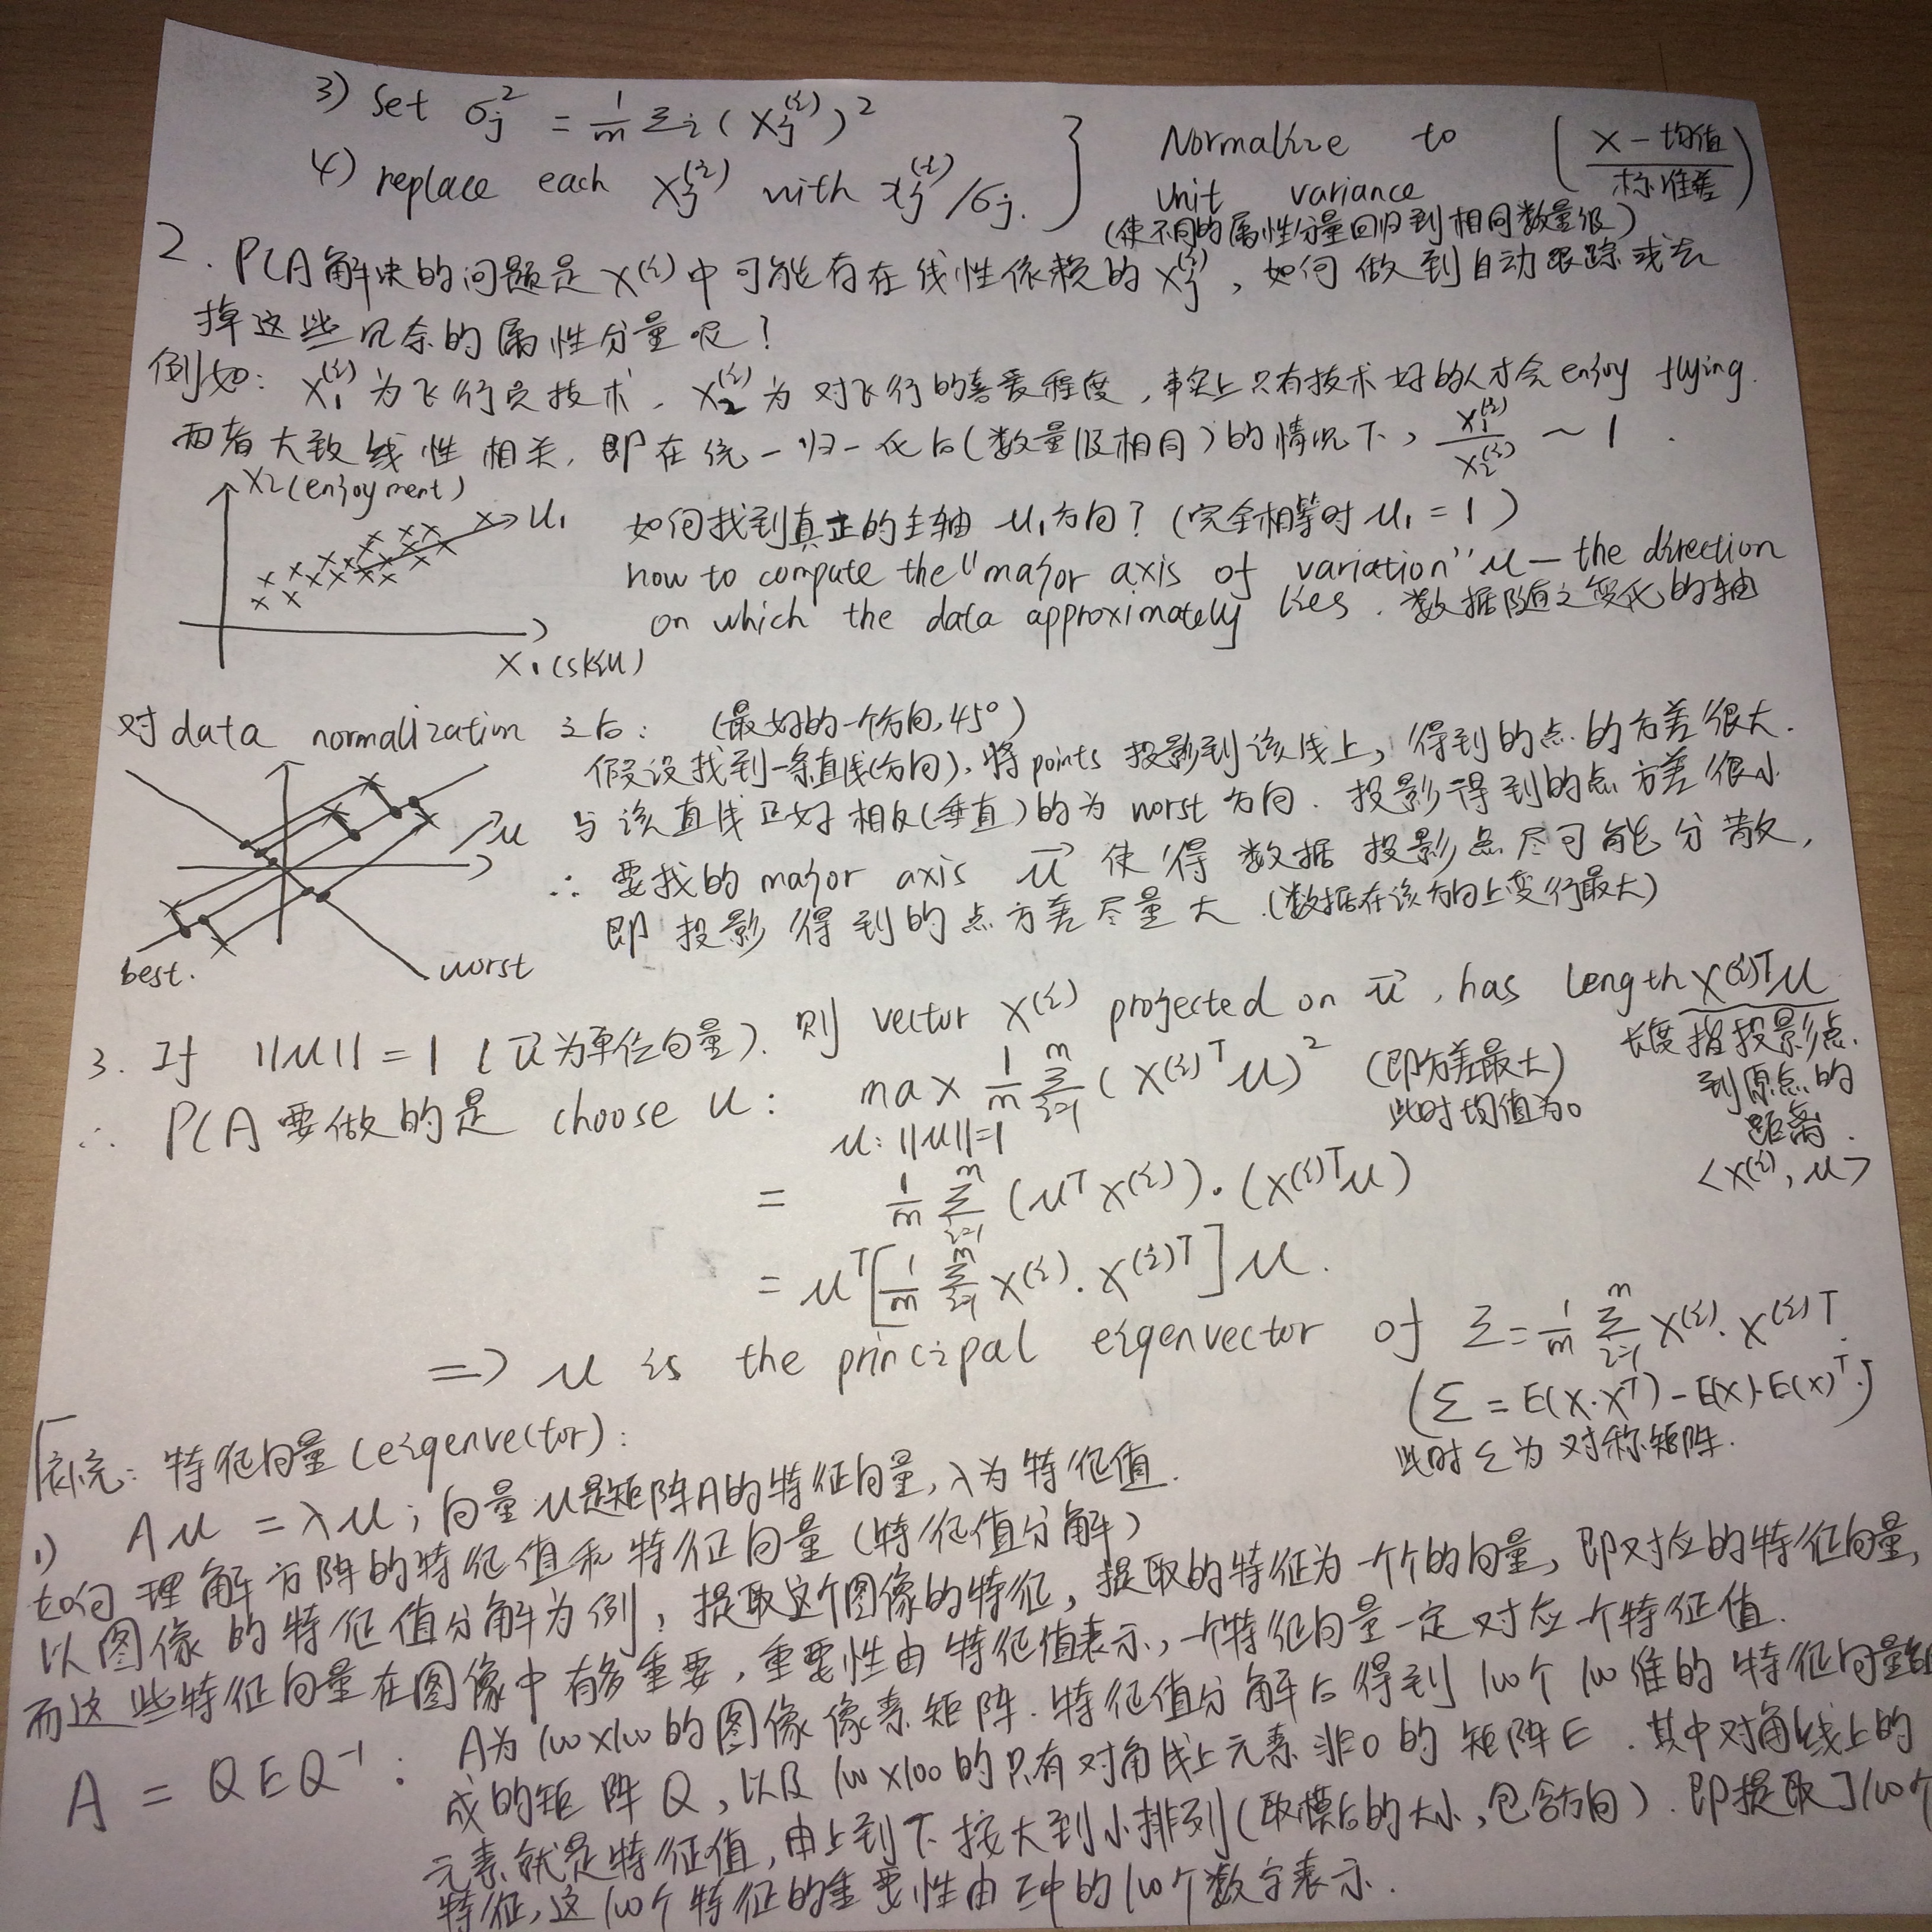 3) Set σj² = 1/m Σi (xj^(i))²
4) replace each xj^(i) with xj^(i)/σj.
Normalize to unit variance (x－均值/标准差)
(使不同的属性分量回归到相同数量级)
2. PCA解决的问题是 x^(i) 中可能存在线性依赖的 xj^(i), 如何做到自动跟踪或去
掉这些冗余的属性分量呢?
例如: x1^(i) 为飞行员技术, x2^(i) 为对飞行的喜爱程度, 事实上只有技术好的人才会 enjoy flying.
两者大致线性相关, 即在统一归一化后(数量级相同)的情况下, x1^(i)/x2^(i) ~ 1.
x2(enjoyment)
u1
x1(skill)
如何找到真正的主轴 u1方向? (完全相等时 u1 = 1)
how to compute the "major axis of variation" u — the direction
on which the data approximately lies. 数据随之变化的轴
对 data normalization 之后: (最好的一个方向, 45°)
假设找到一条直线(方向), 将 points 投影到该线上, 得到的点的方差很大.
与该直线正好相反(垂直)的为 worst 方向. 投影得到的点方差很小
∴ 要找的 major axis u⃗ 使得数据投影点尽可能分散,
即投影得到的点方差尽量大.(数据在该方向上变行最大)
u⃗
best.
worst
3. If ||u|| = 1 (u⃗为单位向量). 则 vector x^(i) projected on u⃗, has length x^(i)T u
长度指投影点
到原点的
距离.
<x^(i), u>
∴ PCA要做的是 choose u: max u:||u||=1 1/m Σ_{i=1}^m (x^(i)T u)² (即方差最大)
此时均值为0
= 1/m Σ_{i=1}^m (u^T x^(i))·(x^(i)T u)
= u^T [1/m Σ_{i=1}^m x^(i)·x^(i)T] u.
=> u is the principal eigenvector of Σ = 1/m Σ_{i=1}^m x^(i)·x^(i)T.
(Σ = E(x·x^T) - E(x)·E(x)^T.)
此时Σ为对称矩阵.
补充: 特征向量(eigenvector):
1) Au = λu; 向量u是矩阵A的特征向量, λ为特征值.
如何理解方阵的特征值和特征向量(特征值分解)
以图像的特征值分解为例, 提取这个图像的特征, 提取的特征为一个个的向量, 即对应的特征向量,
而这些特征向量在图像中有多重要, 重要性由特征值表示, 一个特征向量一定对应一个特征值.
A = QEQ⁻¹: A为100×100的图像像素矩阵. 特征值分解后得到100个100维的特征向量组
成的矩阵Q, 以及100×100的只有对角线上元素非0的矩阵E. 其中对角线上的
元素就是特征值, 由上到下按大到小排列(取模后的大小, 包含方向). 即提取了100个
特征, 这100个特征的重要性由E中的100个数字表示.